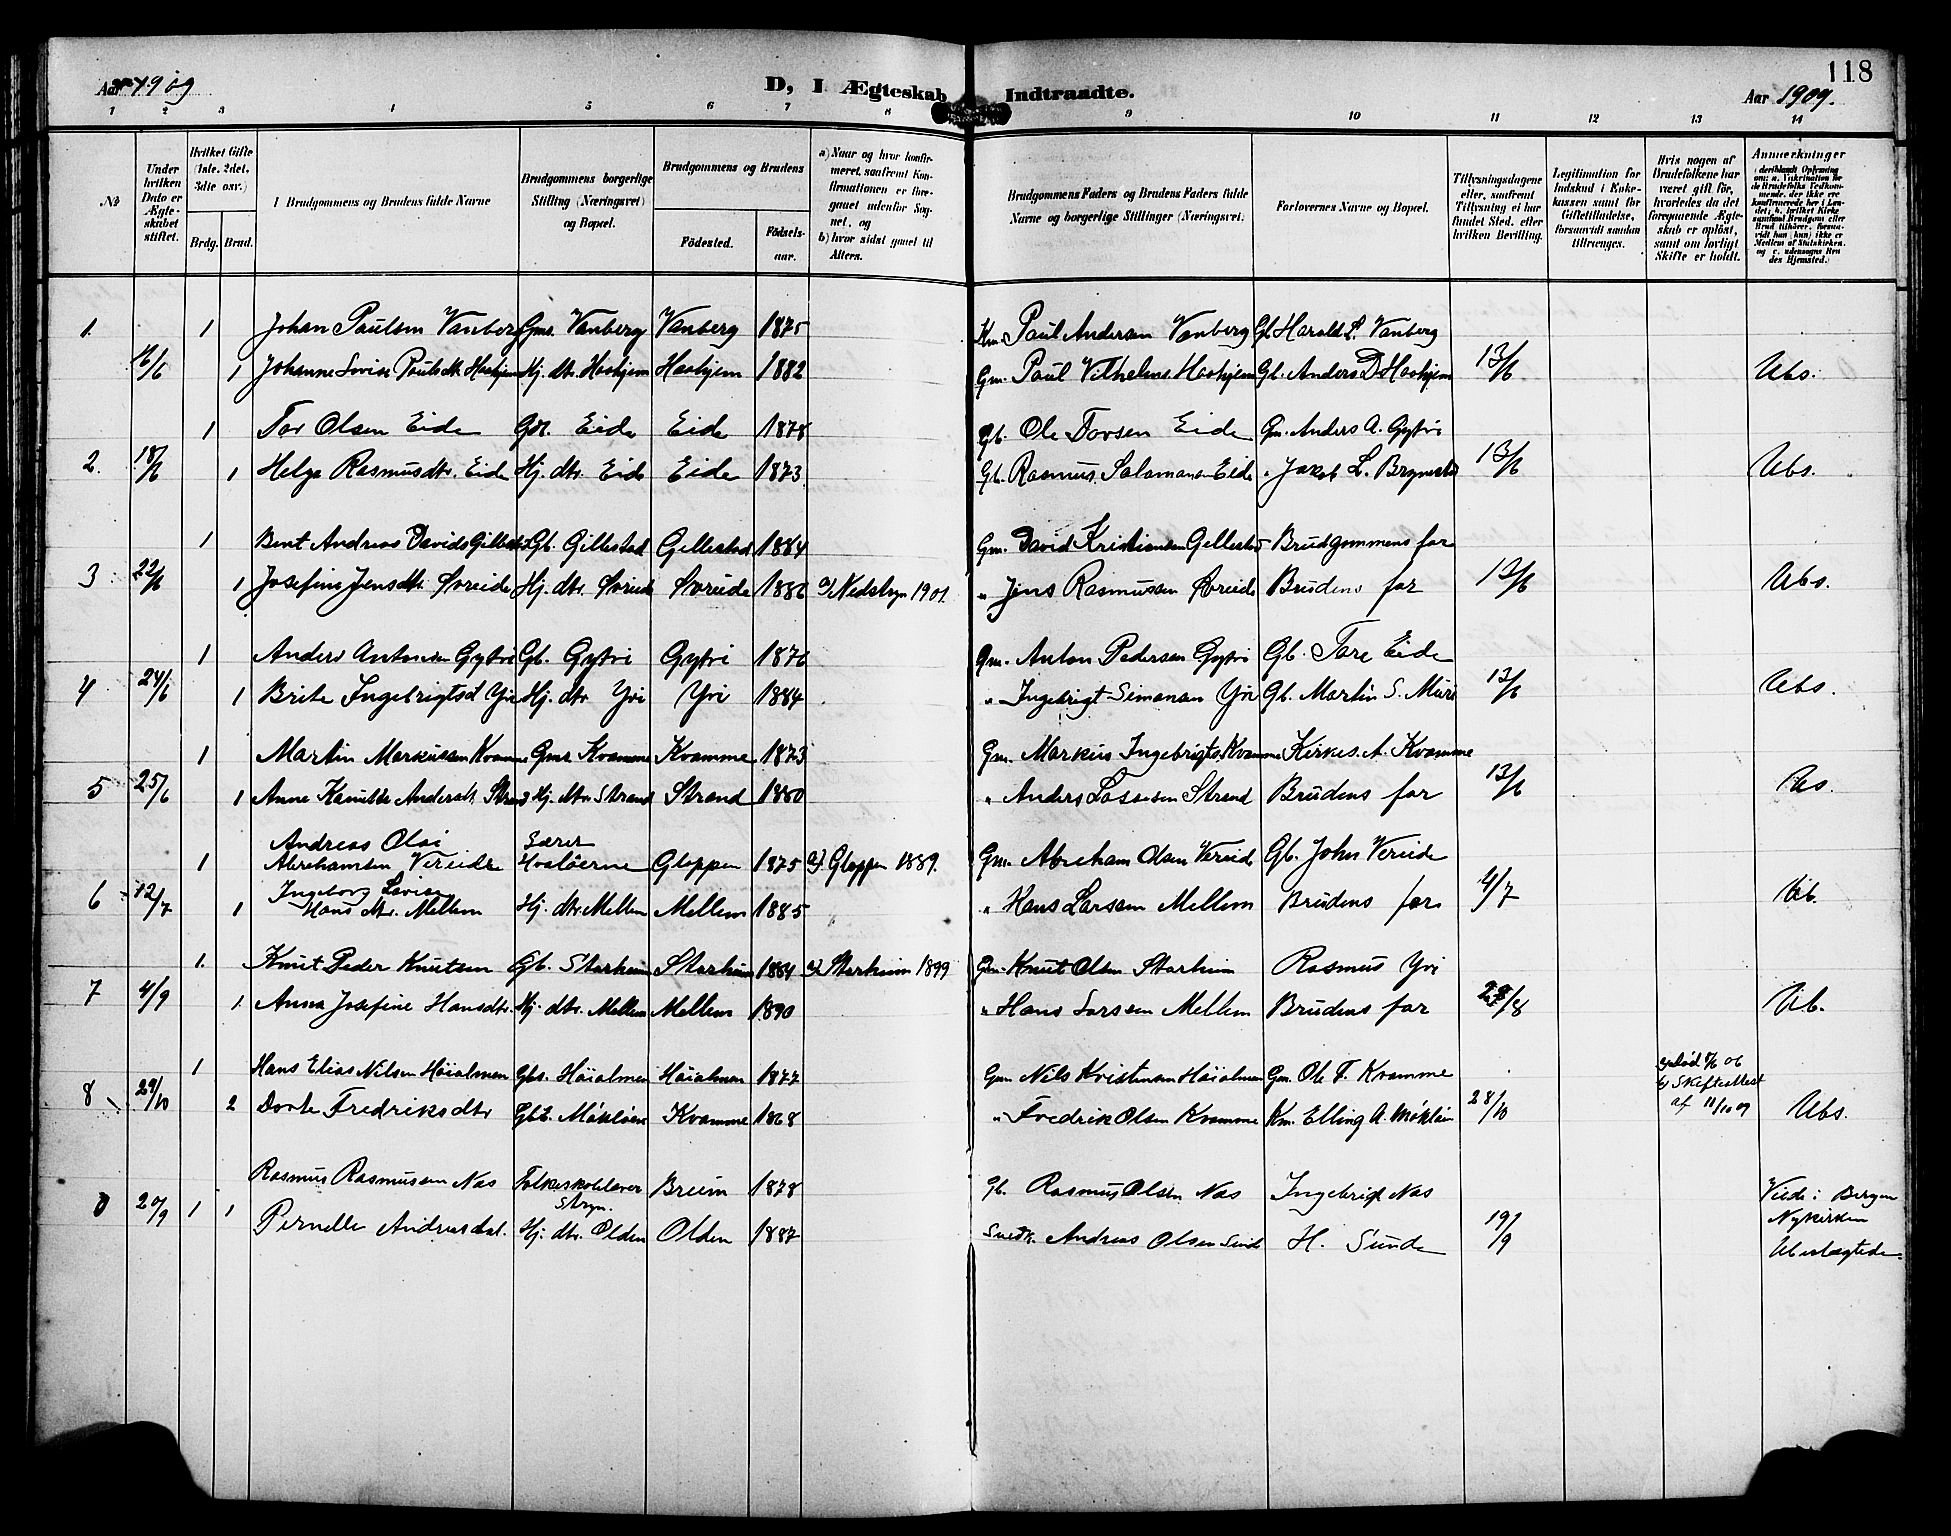 118
Aar 1909
D, I Ægteskab Indtraadte.
Aar 1909.
1 2 3 4 5 6 7 8 9 10 11 12 13 14
No
Under hvilken Dato er Ægteskabet stiftet.
Hvilket Gifte (1ste, 2det, 3die osv.)
Brdg. Brud.
Brudgommens og Brudens fulde Navne
Brudgommens borgerlige Stilling (Næringsvei) og Bopæl.
Brudgommens og Brudens
Fødested.
Fødselsaar.
a) Naar og hvor konfirmeret, saafremt Konfirmationen er foregaaet udenfor Sognet, og
b) hvor sidst gaaet til Alters.
Brudgommens Faders og Brudens Faders fulde Navne og borgerlige Stillinger (Næringsvei)
Forlovernes Navne og Bopæl.
Tillysningsdagene eller, saafremt Tillysning ei har fundet Sted, efter hvilken Bevilling.
Legitimation for Indskud i Enkekassen samt for Giftetilladelse, forsaavidt saadan tiltrænges.
Hvis nogen af Brudefolkene har været gift før, hvorledes da det foregaaende Ægteskab er opløst, samt om lovligt Skifte er holdt.
Anmerkninger
1. 1 Johan Paulsen Vanberg Gms. Vanberg Vanberg 1875 Km. Paul Andersen Vanberg Gb. Harald L. Vanberg
16/6 1 Johanne Lovise Paulsdtr. Haahjem Hj. dtr. Haahjem Haahjem 1882 Gm. Paul Vilhelms. Haahjem Gb. Anders D. Haahjem 13/6 Ubs.
1 Tor Olsen Eide Gbr. Eide Eide 1878 Gb. Ole Torsen Eide Gm. Anders A. Gytri
2. 18/6 1 Helga Rasmusdtr. Eide Hj. dtr. Eide Eide 1873 Gb. Rasmus Salamonsen Eide " Jakob L. Brynestad 13/6 Ubs.
1 Bent Andreas Davids Gillestad Gb. Gillestad Gillestad 1884 Gm. David Kristiansen Gillestad Brudgommens far
3 22/6 1 Josefine Jensdtr. Søreide Hj. dtr. Søreide Søreide 1886 a) Nedstryn 1901. " Jens Rasmussen Søreide Brudens far 13/6 Ubs.
1 Anders Antonsen Gytri Gb. Gytri Gytri 1876 Gm. Anton Pedersen Gytri Gb. Tore Eide
4 24/6 1 Brite Ingebrigtsd. Yri Hj. dtr. Yri Yri 1884 " Ingebrigt Simonsen Yri Gb. Martin S. Muri 13/6 Ubs.
1 Martin Markussen Kvamme Gms. Kvamme Kvamme 1873 Gm. Markus Ingebrigts. Kvamme Kirkes. A. Kvamme
5 25/6 1 Anne Kamilla Andersdt. Strand Hj. dtr. Strand Strand 1880 " Anders Lassesen Strand Brudens far 13/6 Ubs.
1 Andreas Olai Abrahamsen Vereide Lærer Hvaløerne Gloppen 1875 a) Gloppen 1889. Gm. Abraham Olsen Vereide Gb. John Vereide
6 12/7 1 Ingeborg Lovise Hans dtr. Mellem Hj. dtr. Mellem Mellem 1885 " Hans Larsen Mellem Brudens far 4/7 Ub.
1. Knut Peder Knutsen Gb. Starheim Starheim 1884 a) Starheim 1899 Gm. Knut Olsen Starheim Rasmus Yri
7 4/9 1. Anna Josefine Hansdtr. Hj. dtr. Mellem Mellem 1890 " Hans Larsen Mellem Brudens far 29/8 Ub.
1 Hans Elias Nilsen Høialmen Gbs. Høialmen Høialmen 1877 Gm. Nils Kristensen Høialmen Gm. Ole F. Kvamme a) død 5/6 06 b) Skifteattest af 11/10 09
8 29/10 2 Dorte Fredriksdtr Gbe. Mækløen Kvamme 1868 " Fredrik Olsen Kvamme Km. Elling A. Mækløen 28/10 Ubs.
Rasmus Rasmussen Nos Folkeskolelærer Stryn. Breim 1878 Gb. Rasmus Olsen Nos Ingebrigt Nos Viede i Bergen
20/9 1 1 Pernelle Andreasdat. Hj. dtr. Olden Olden 1887 Snedk. Andreas Olsen Sunde H. Sunde 19/9 Nykirken Ubeslægtede.